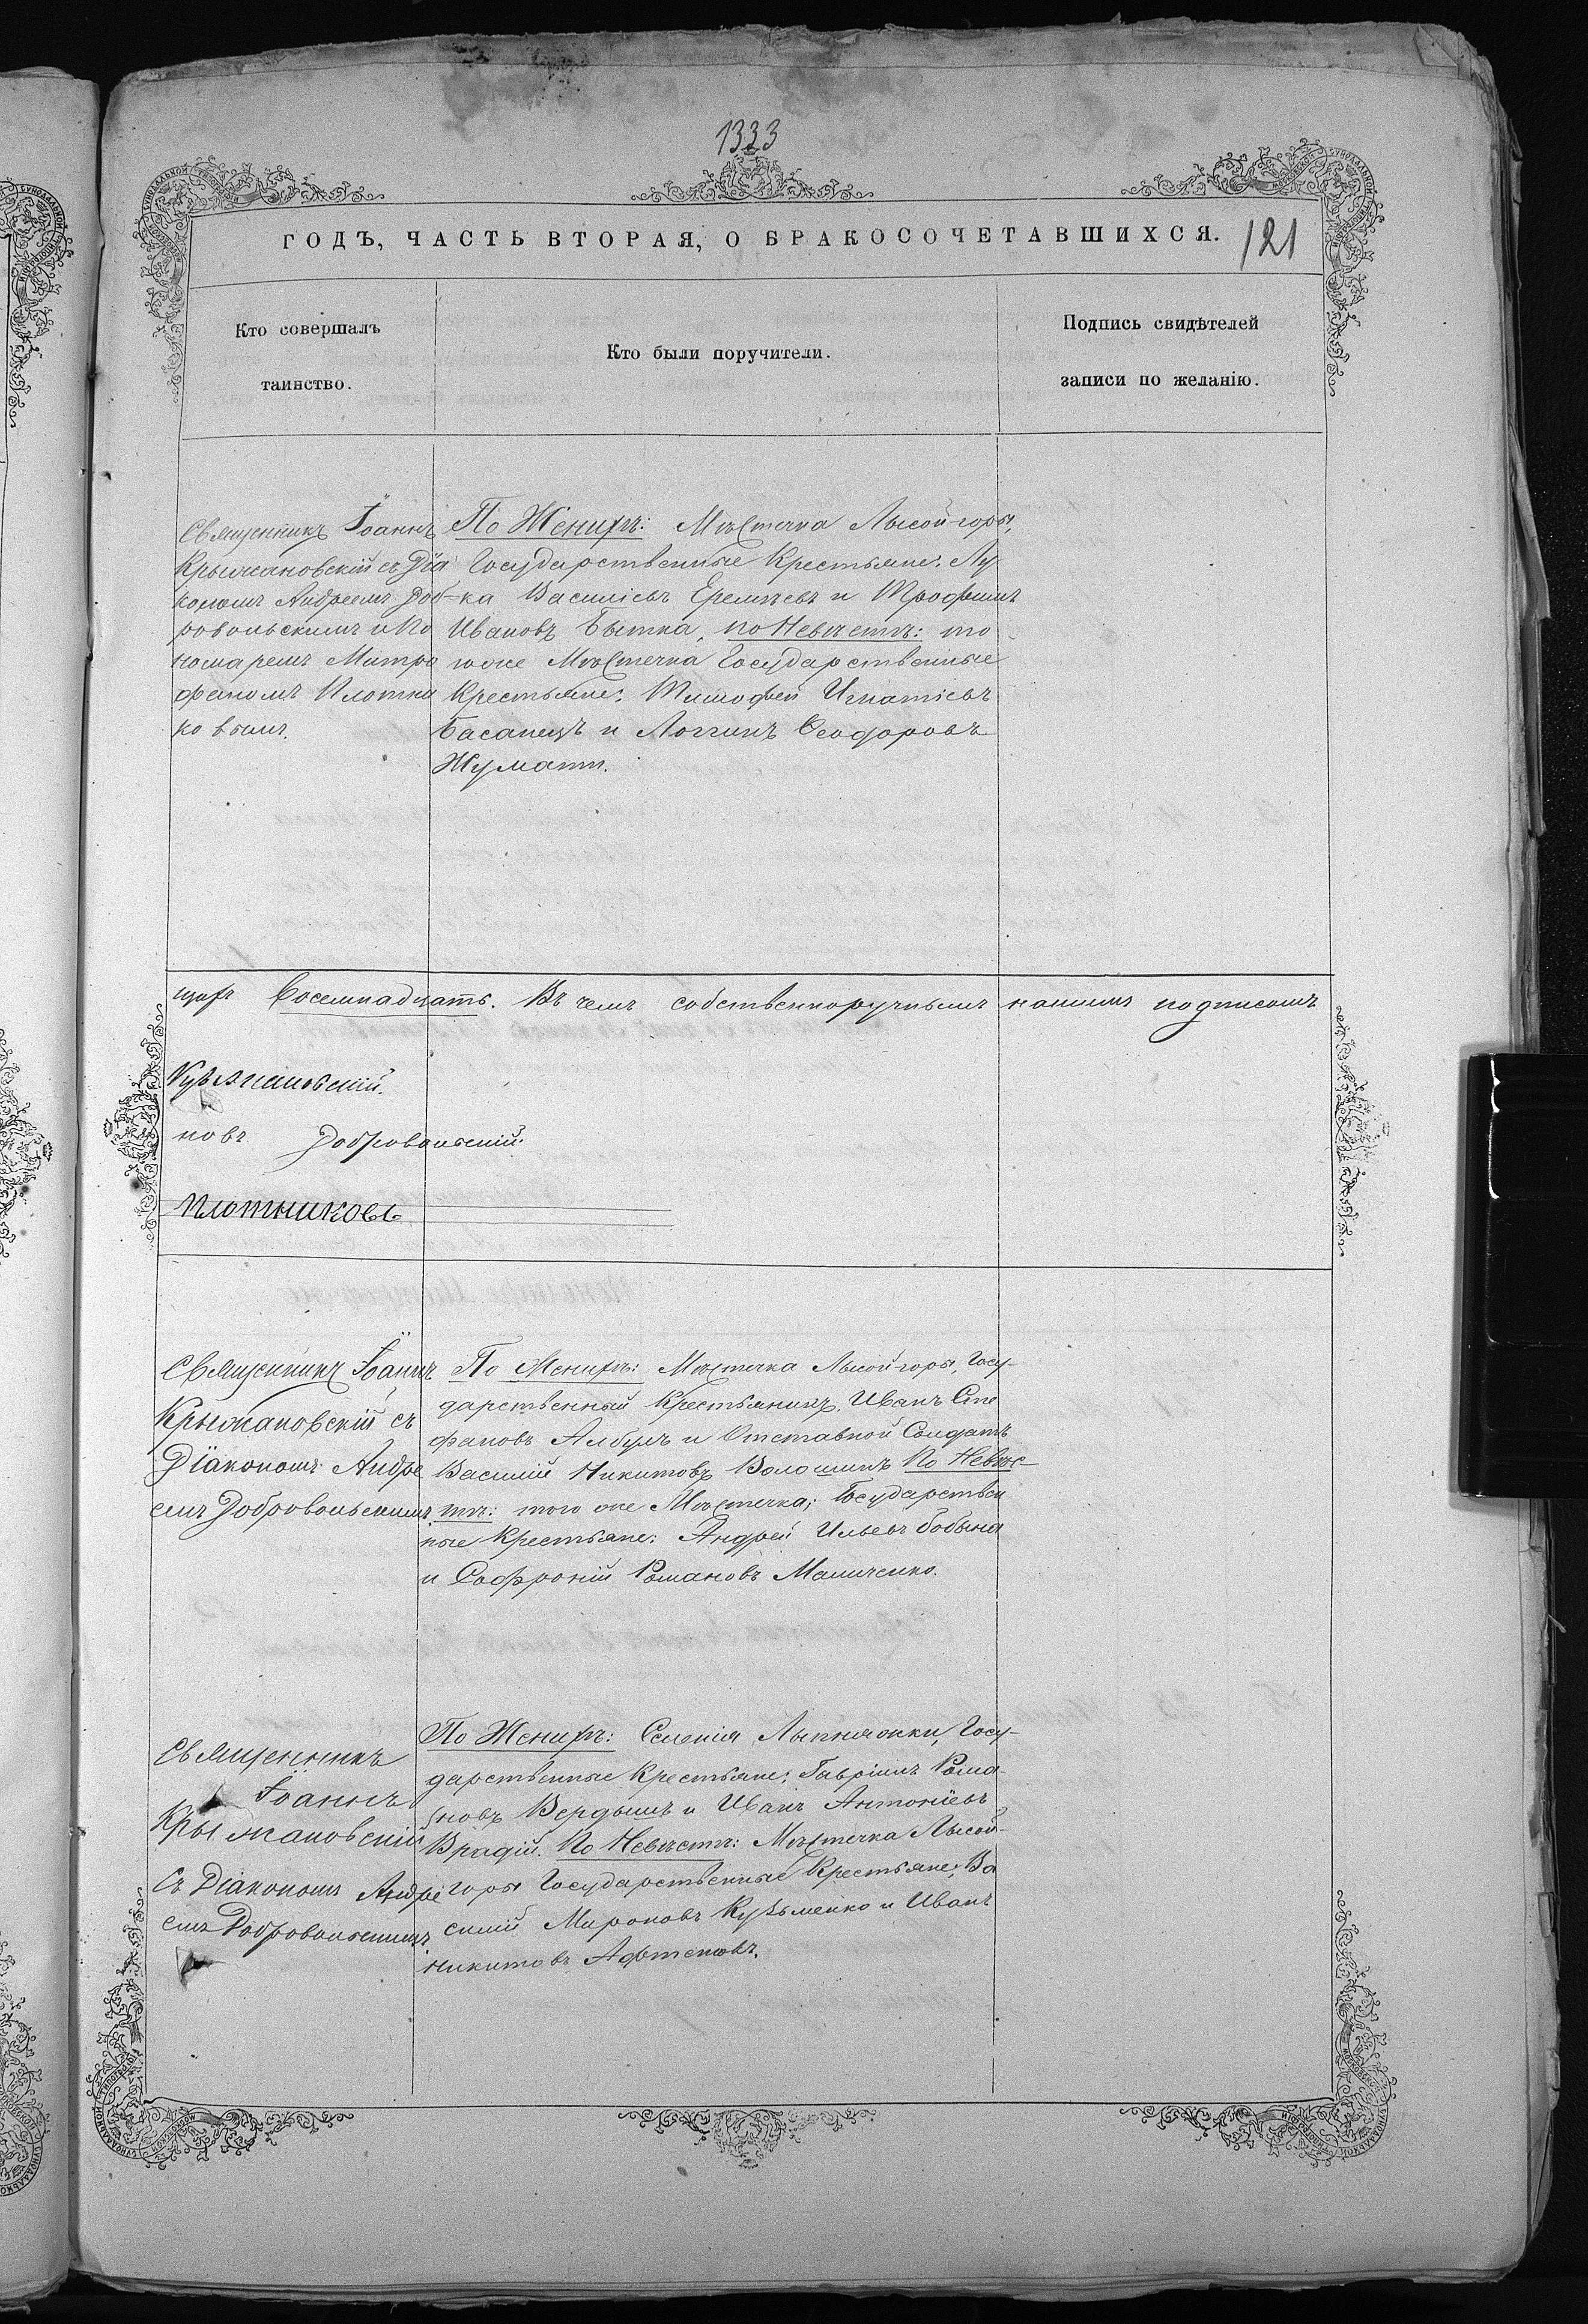 1333
ГОДЪ, ЧАСТЬ ВТОРАЯ, О БРАКОСОЧЕТАВШИХСЯ.
121
Кто совершалъ
таинство.
Кто были поручители.
Подпись свидѣтелей
записи по желанію.
Священникъ Іоаннъ
Крыжановскій съ Діа
кономъ Андреемъ Доб-
ровольскимъ и По
номаремъ Митро
фаномъ Плотни
ковымъ.
По Женихѣ: Мѣстечка Лысой-горы,
Государственные Крестьяне: Лу
ка Василіевъ Еремѣевъ и Трофимъ
Ивановъ Бытка, по Невѣстѣ: то
гоже Мѣстечка Государственные
Крестьяне: Тимофей Игнатіевъ
Басанецъ и Логгинъ Ѳеодоровъ
Жумати.
Восемнадцать. Въ чемъ собственноручнымъ нашимъ подписомъ
новъ Добровольскій.
Плотниковъ
Священникъ Іоаннъ
Крыжановскій съ
Діакономъ Андре
емъ Добровольскимъ
По Женихѣ: Мѣстечка Лысой-горы, Госу-
дарственный Крестьянинъ Иванъ Сте
фановъ Албулъ и Отставной Солдатъ
Василій Никитовъ Волошинъ По Невѣс-
тѣ: того же Мѣстечка; Государствен
ные Крестьяне: Андрей Ильевъ Бобына
и Софроній Романовъ Маличенко.
Священникъ
Іоаннъ
Крыжановскій
Съ Діакономъ Андре
емъ Добровольскимъ.
По Женихѣ: Селенія Лыпняжки, Госу-
дарственные Крестьяне: Гавріилъ Рома-
новъ Вердышъ и Иванъ Антоніевъ
Врадій. По Невѣстѣ: Мѣстечка Лысой-
горы Государственные Крестьяне: Ва
силій Мироновъ Кузьменко и Иванъ
Никитовъ Афтеновъ.